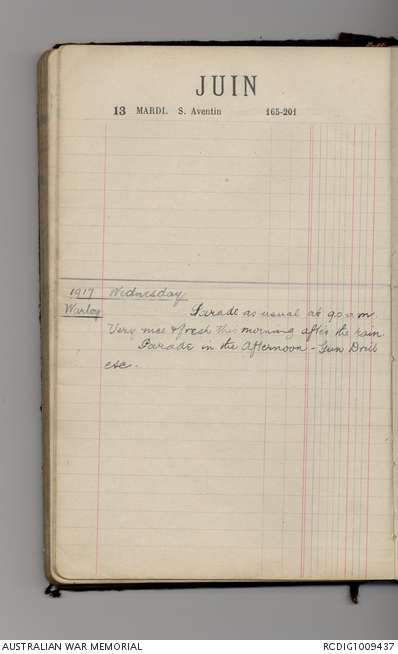 JUIN
13 MARDI. S. Aventin 165-201
1917 Wednesday
Warloy Parade as usual at 9.0 a.m.
Very nice & fresh this morning after the rain.
Parade in the Afternoon - Gun Drill
etc.
AUSTRALIAN WAR MEMORIAL RCDIG1009437